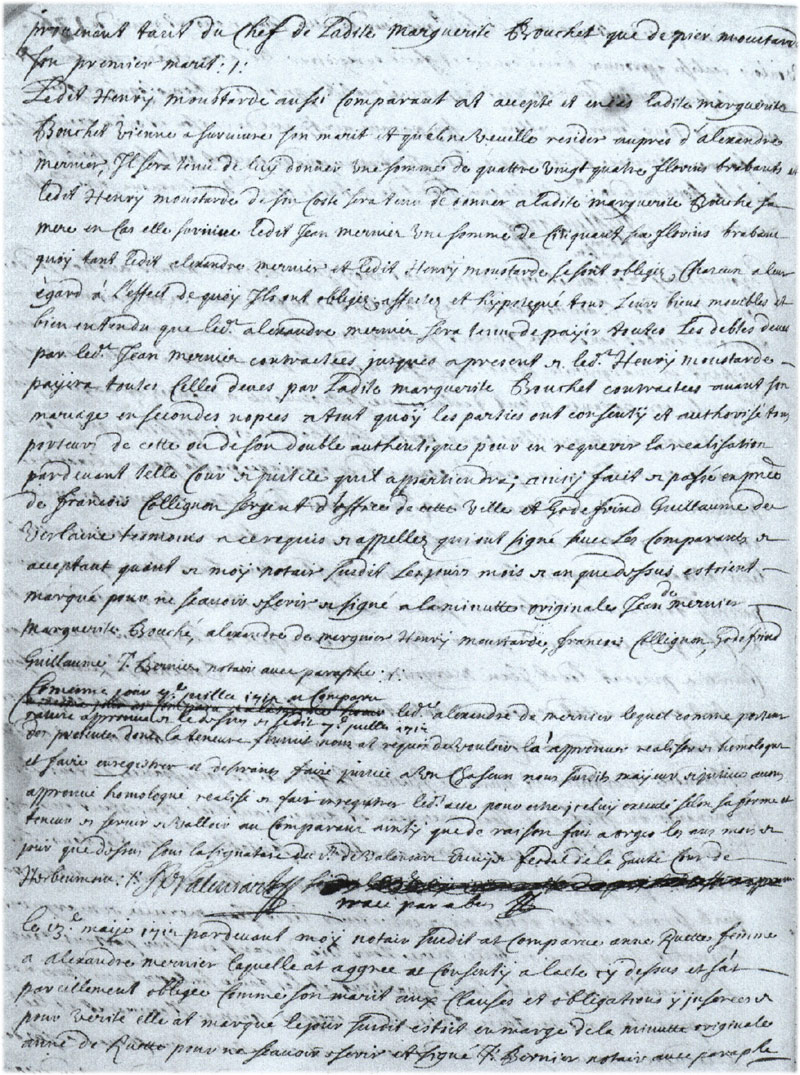 provenant tant du Chef de Ladite Marguerite Brouchet que de pier moustard
son premier marit :/:
Ledit Henry moustarde aussi Comparant at accepté et en Cas Ladite marguerite
Bouchet vienne a survivre son marit et qu'elle ne veuille resider aupres d'alexandre
mernier, Il sera tenu de luy donner une somme de quattre vingt quatre florins brabants et
ledit Henry moustarde de son Costé sera tenu de donner a ladite marguerite Bouche sa
mere en Cas elle survive ledit Jean mernier une somme de Cinquant six florins brabant
quoy tant ledit alexandre mernier et ledit Henry moustarde se sont obligez, Chacun a leur
égard à L'effect de quoy Ils ont obligez, affectez et hypotequé tous Leurs biens meubles et
bien entendu que led.t alexandre mernier sera tenu de payer toutes Les debtes deues
par led.t Jean mernier contractées jusques a present et led.t Henry moustarde
payera toutes Celles deues par Ladite marguerite Bouchet contractées avant son
mariage en secondes nopces et tout quoy les parties ont consenty et authorisé tous
porteurs de cette ou de son double authentique pour en requerir La realisation
pardevant telle Cour et justice qu'il appartiendra; ainsy fait et passé en pnce
de francois Collignon sergent d'office de cette ville et Godefroid Guillaume de
Verlaine tesmoins a ce requis et appellez qui ont signé avec Les Comparants et
acceptant quant et moy notair sudit Les jours mois et an que dessus estoient
marqué pour ne scavoir escrir et signé a la minutte originale Jean de mernier
Marguerite Bouché, alexandre de mergnier Henry moustarde francois Collignon, Godefroid
Guillaume, T. Bernier notair avec paraphe :/:
Comme jour 7e juillet 1712 at Comparu
rature approuvée le 7e juillet 1712 led.t alexandre de mernier lequel comme porteur
des presentes dont la teneure nous at requis de vouloir la approuver realiser et homologuer
et faire enregistrer et desirant faire justice a un Chascun nous sudits mayeur et justice avons
approuvé homologué realisé et fait enregistrer led.t acte pour estre iceluy executé selon sa forme et
teneur et servir et valloir au Comparant ainsy que de raison fait a orgeo les ans mois et
jour que dessus sous la signature du Sr. de Valensart greffier feodal de la haute Cour de
Herbeumont :/: J Valensart
trace par abus
le 13e maye 1712 pardevant moy notair sudit at Comparue anne Ruette femme
a alexandre mernier laquelle at aggreé et Consenty a lacte cy dessus et s'at
pareillement obligée Comme son marit aux Clauses et obligations y inserées et
pour verité elle at marqué le jour sudit estoit en marge de la minutte originale
anne de Ruette pour ne scavoir escrir et signé T. Bernier notaire avec paraphe